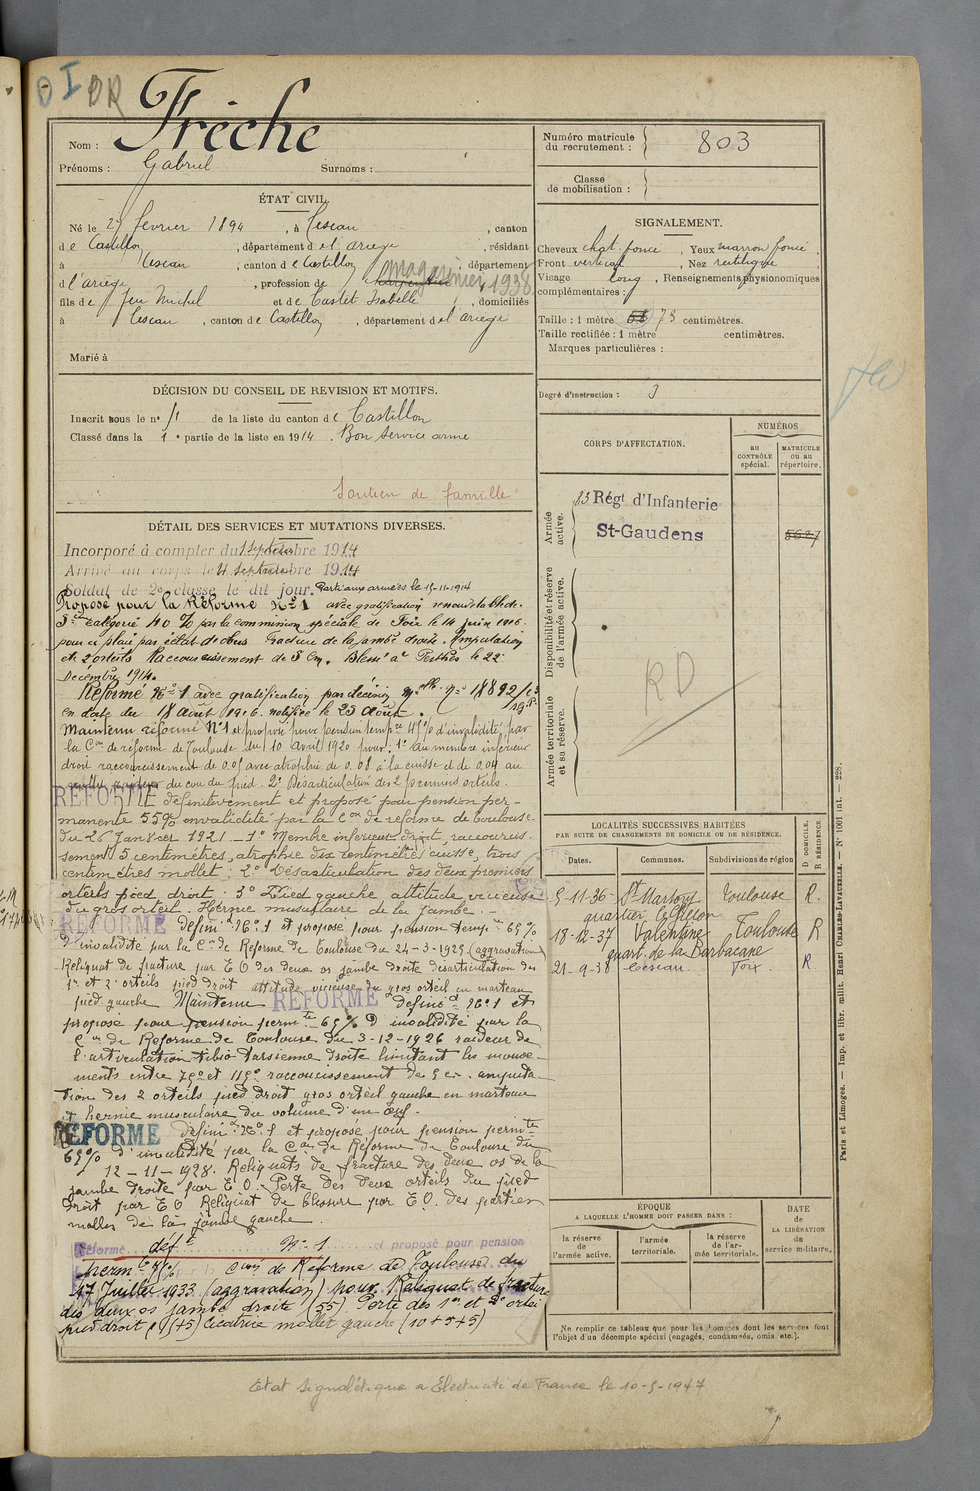 O I DR
Frèche
Nom :
Prénoms : Gabriel Surnoms :
Numéro matricule
du recrutement : 803
Classe
de mobilisation :
ÉTAT CIVIL.
Né le 27 février 1894, à Cescau, canton
de Castillon, département d el ariege, résidant
à Cescau, canton d e Castillon, département
magasinier, 1938
d l'ariege, profession de charpentier
fils de feu Michel et de Castet Isabelle, domiciliés
à Cescau, canton de Castillon, département d el ariege
Marié à
SIGNALEMENT.
Cheveux chat. foncé, Yeux marron foncé
Front vertical, Nez rectiligne
Visage long, Renseignements physionomiques
complémentaires :
Taille : 1 mètre 73 centimètres.
Taille rectifiée : 1 mètre centimètres.
Marques particulières :
Degré d'instruction : 3
DÉCISION DU CONSEIL DE REVISION ET MOTIFS.
Inscrit sous le n° de la liste du canton d e Castillon
Classé dans la 1e partie de la liste en 1914. Bon service armé
Soutien de famille
CORPS D'AFFECTATION.
NUMÉROS
au
CONTRÔLE
spécial.
MATRICULE
ou au
répertoire.
Armée
active.
83 Régt d'Infanterie
St-Gaudens
5627
Disponibilité et réserve
de l'armée active.
RD
Armée territoriale
et sa réserve.
DÉTAIL DES SERVICES ET MUTATIONS DIVERSES.
Incorporé à compter du septembre 1914
Arrivé au corps le 4 septembre 1914
Soldat de 2e classe le dit jour. Parti aux armées le 15-11-1914
Proposé pour la Réforme N° 1 avec gratification renouvelable de
5e catégorie 40 % par la commission spéciale de Foix le 14 juin 1916
pour : plaie par éclat d'obus Fracture de la jambe droite. Amputation
de 2 orteils Raccourcissement de 5 cm. Blessé à Perthes le 22
Décembre 1914.
Réformé N° 1 avec gratification par décision Melle N° 18892/
en date du 18 août 1916. notifiée le 23 août.
Maintenu réformé N°1 et proposé pour pension tempre 45% d'invalidité, par
la Con de réforme de Toulouse du 10 avril 1920 pour : 1° au membre inférieur
droit raccourcissement de 0.05 avec atrophie de 0.08 à la cuisse et de 0,04 au
mollet, raideur du cou du pied. 2° Désarticulation des 2 premiers orteils.
REFORMÉ définitivement et proposé pour pension per-
manente 55% invalidité par la Con de réforme de Toulouse
du 26 Janvier 1921. 1° Membre inférieur droit, raccourcis-
sement 5 centimètres, atrophie dix centimètres cuisse, trois
centimètres mollet : 2° Désarticulation des deux premiers
orteils pied droit : 3° Pied gauche attitude vicieuse
du gros orteil. Hernie musculaire de la jambe.
REFORMÉ définit N° 1 et proposé pour pension temp. 65%
d'invalidité par la Con de Réforme de Toulouse du 24-3-1925 (aggravation)
Reliquat de fracture par E O des deux os jambe droite désarticulation des
1er et 2e orteils pied droit attitude vicieuse du gros orteil en marteau
pied gauche Maintenu REFORMÉ définit N° 1 et
proposé pour pension permte 65% d'invalidité par la
Con de Réforme de Toulouse du 3-12-1926 raideur de
l'articulation tibio-tarsienne droite limitant les mouve-
ments entre 75° et 115° raccourcissement de 5 cm. amputa-
tion des 2 orteils pied droit gros orteil gauche en marteau
et hernie musculaire du volume d'un œuf.
REFORME définit N° 1 et proposé pour pension permte
65% d'invalidité par la Con de Réforme de Toulouse du
12-11-1928. Reliquats de fracture des deux os de la
jambe droite par E O. Perte des deux orteils du pied
droit par E O Reliquat de blessure par E O. des parties
molles de la jambe gauche.
Réformé défve N° 1 et proposé pour pension
permte % par la Cion de Réforme de Toulouse du
17 Juillet 1933 (aggravation) pour Reliquat de fracture
des deux os jambe droite (55). Perte des 1er et 2e orteils
pied droit (+5) Cicatrice mollet gauche (10+5+5)
LOCALITÉS SUCCESSIVES HABITÉES
PAR SUITE DE CHANGEMENTS DE DOMICILE OU DE RÉSIDENCE.
Dates. Communes. Subdivisions de région D DOMICILE. R RÉSIDENCE.
5-11-36 St Martory Toulouse R.
quartier
18-12-37 Valentine Toulouse R
quart. de la Barbacane
21-9-38 Cescau Foix R.
ÉPOQUE
A LAQUELLE L'HOMME DOIT PASSER DANS :
la réserve
de
l'armée active.
l'armée
territoriale.
la réserve
de l'ar-
mée territoriale.
DATE
de
LA LIBÉRATION
du
service militaire.
Ne remplir ce tableau que pour les hommes dont les services font
l'objet d'un décompte spécial (engagés, condamnés, omis, etc.).
Paris et Limoges. — Imp. et libr. milit. Henri CHARLES-LAVAUZELLE. — N° 1001 int. — 228.
Etat signalétique a Electricité de France le 10-5-1947